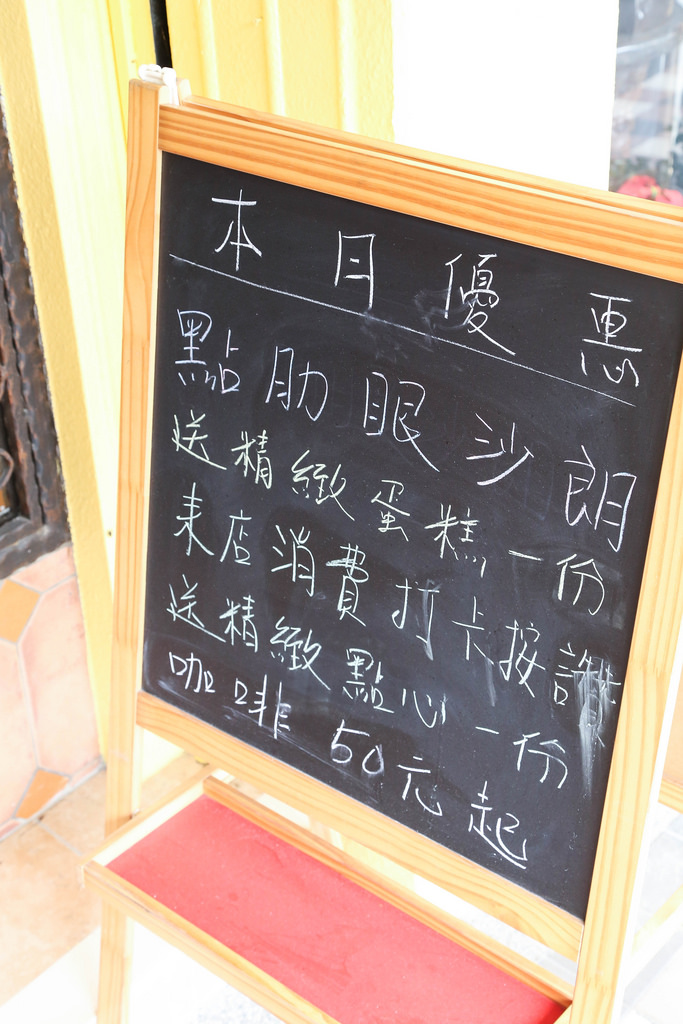 本月優惠
點肋眼沙朗
送精緻蛋糕一份
來店消費打卡按讚
送精緻點心一份
咖啡50元起